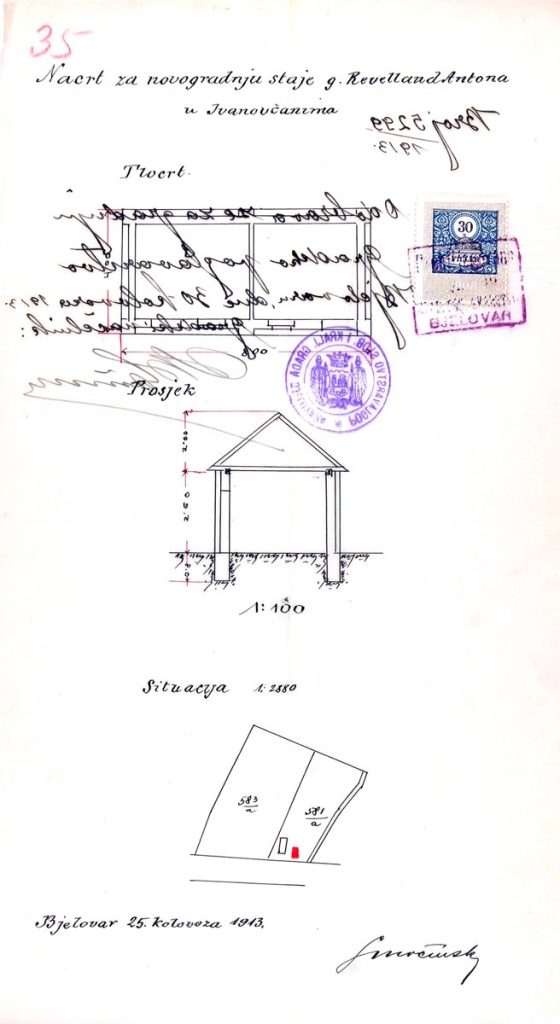 35
Nacrt za novogradnju staje g. Revelland Antona
u Ivanovčanima
Broj 5299
1913.
Tlocrt
30
Dozvoljava se za gradnju
Gradsko poglavarstvo
Bjelovar, dne 30 kolovoza 1913.
Gradski načelnik:
BJELOVAR
POGLAVARSTVO SLOB. I KRALJ. GRADA
Prosjek
2·00
2·50
1:100
Situacija 1:2880
583/a
581/a
Bjelovar 25. kolovoza 1913.